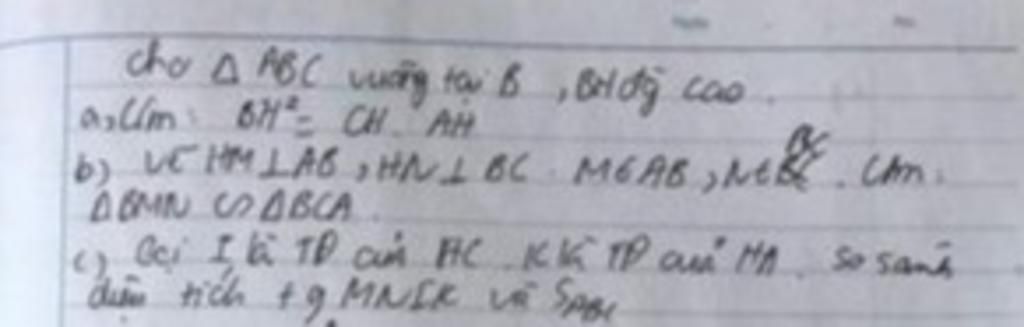 cho Δ ABC vuông tại B , BH đg cao .
a, C/m : BH² = CH . AH
b) Vẽ HM ⊥ AB , HN ⊥ BC . M ∈ AB , N ∈ BC . C/m :
Δ BMN ∽ Δ BCA .
c) Gọi I là TĐ của HC . K là TĐ của HA . so sánh
diện tích tg MNIK và S ABC